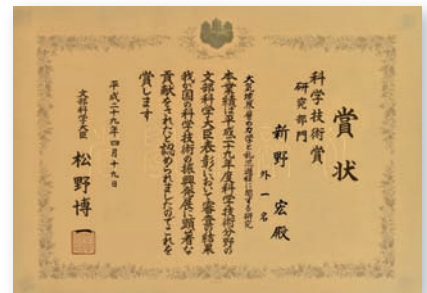 賞状
科学技術賞
研究部門
新野 宏 殿
外一名
大気境界層の力学と乱流過程に関する研究
本業績は平成二十九年度科学技術分野の
文部科学大臣表彰において審査の結果
我が国の科学技術の振興発展に顕著な
貢献をされたと認められましたのでこれを
賞します
平成二十九年四月十九日
文部科学大臣 松野博一